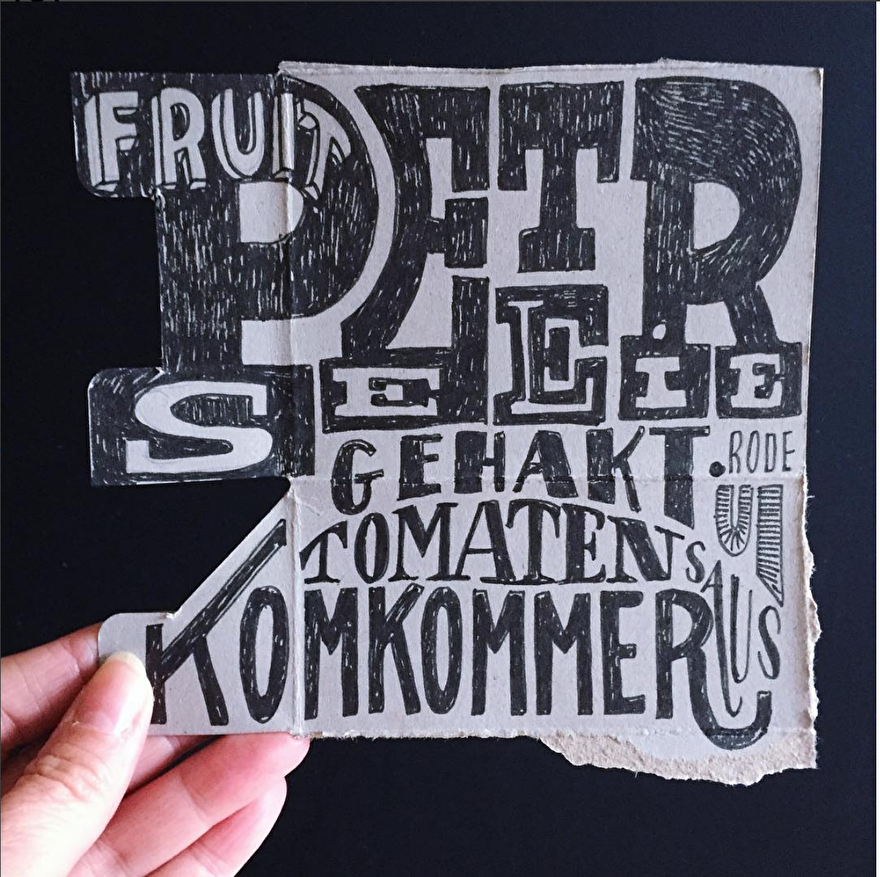 FRUIT
PETR
SELIE
GEHAKT
RODE
UI
TOMATENSAUS
KOMKOMMER